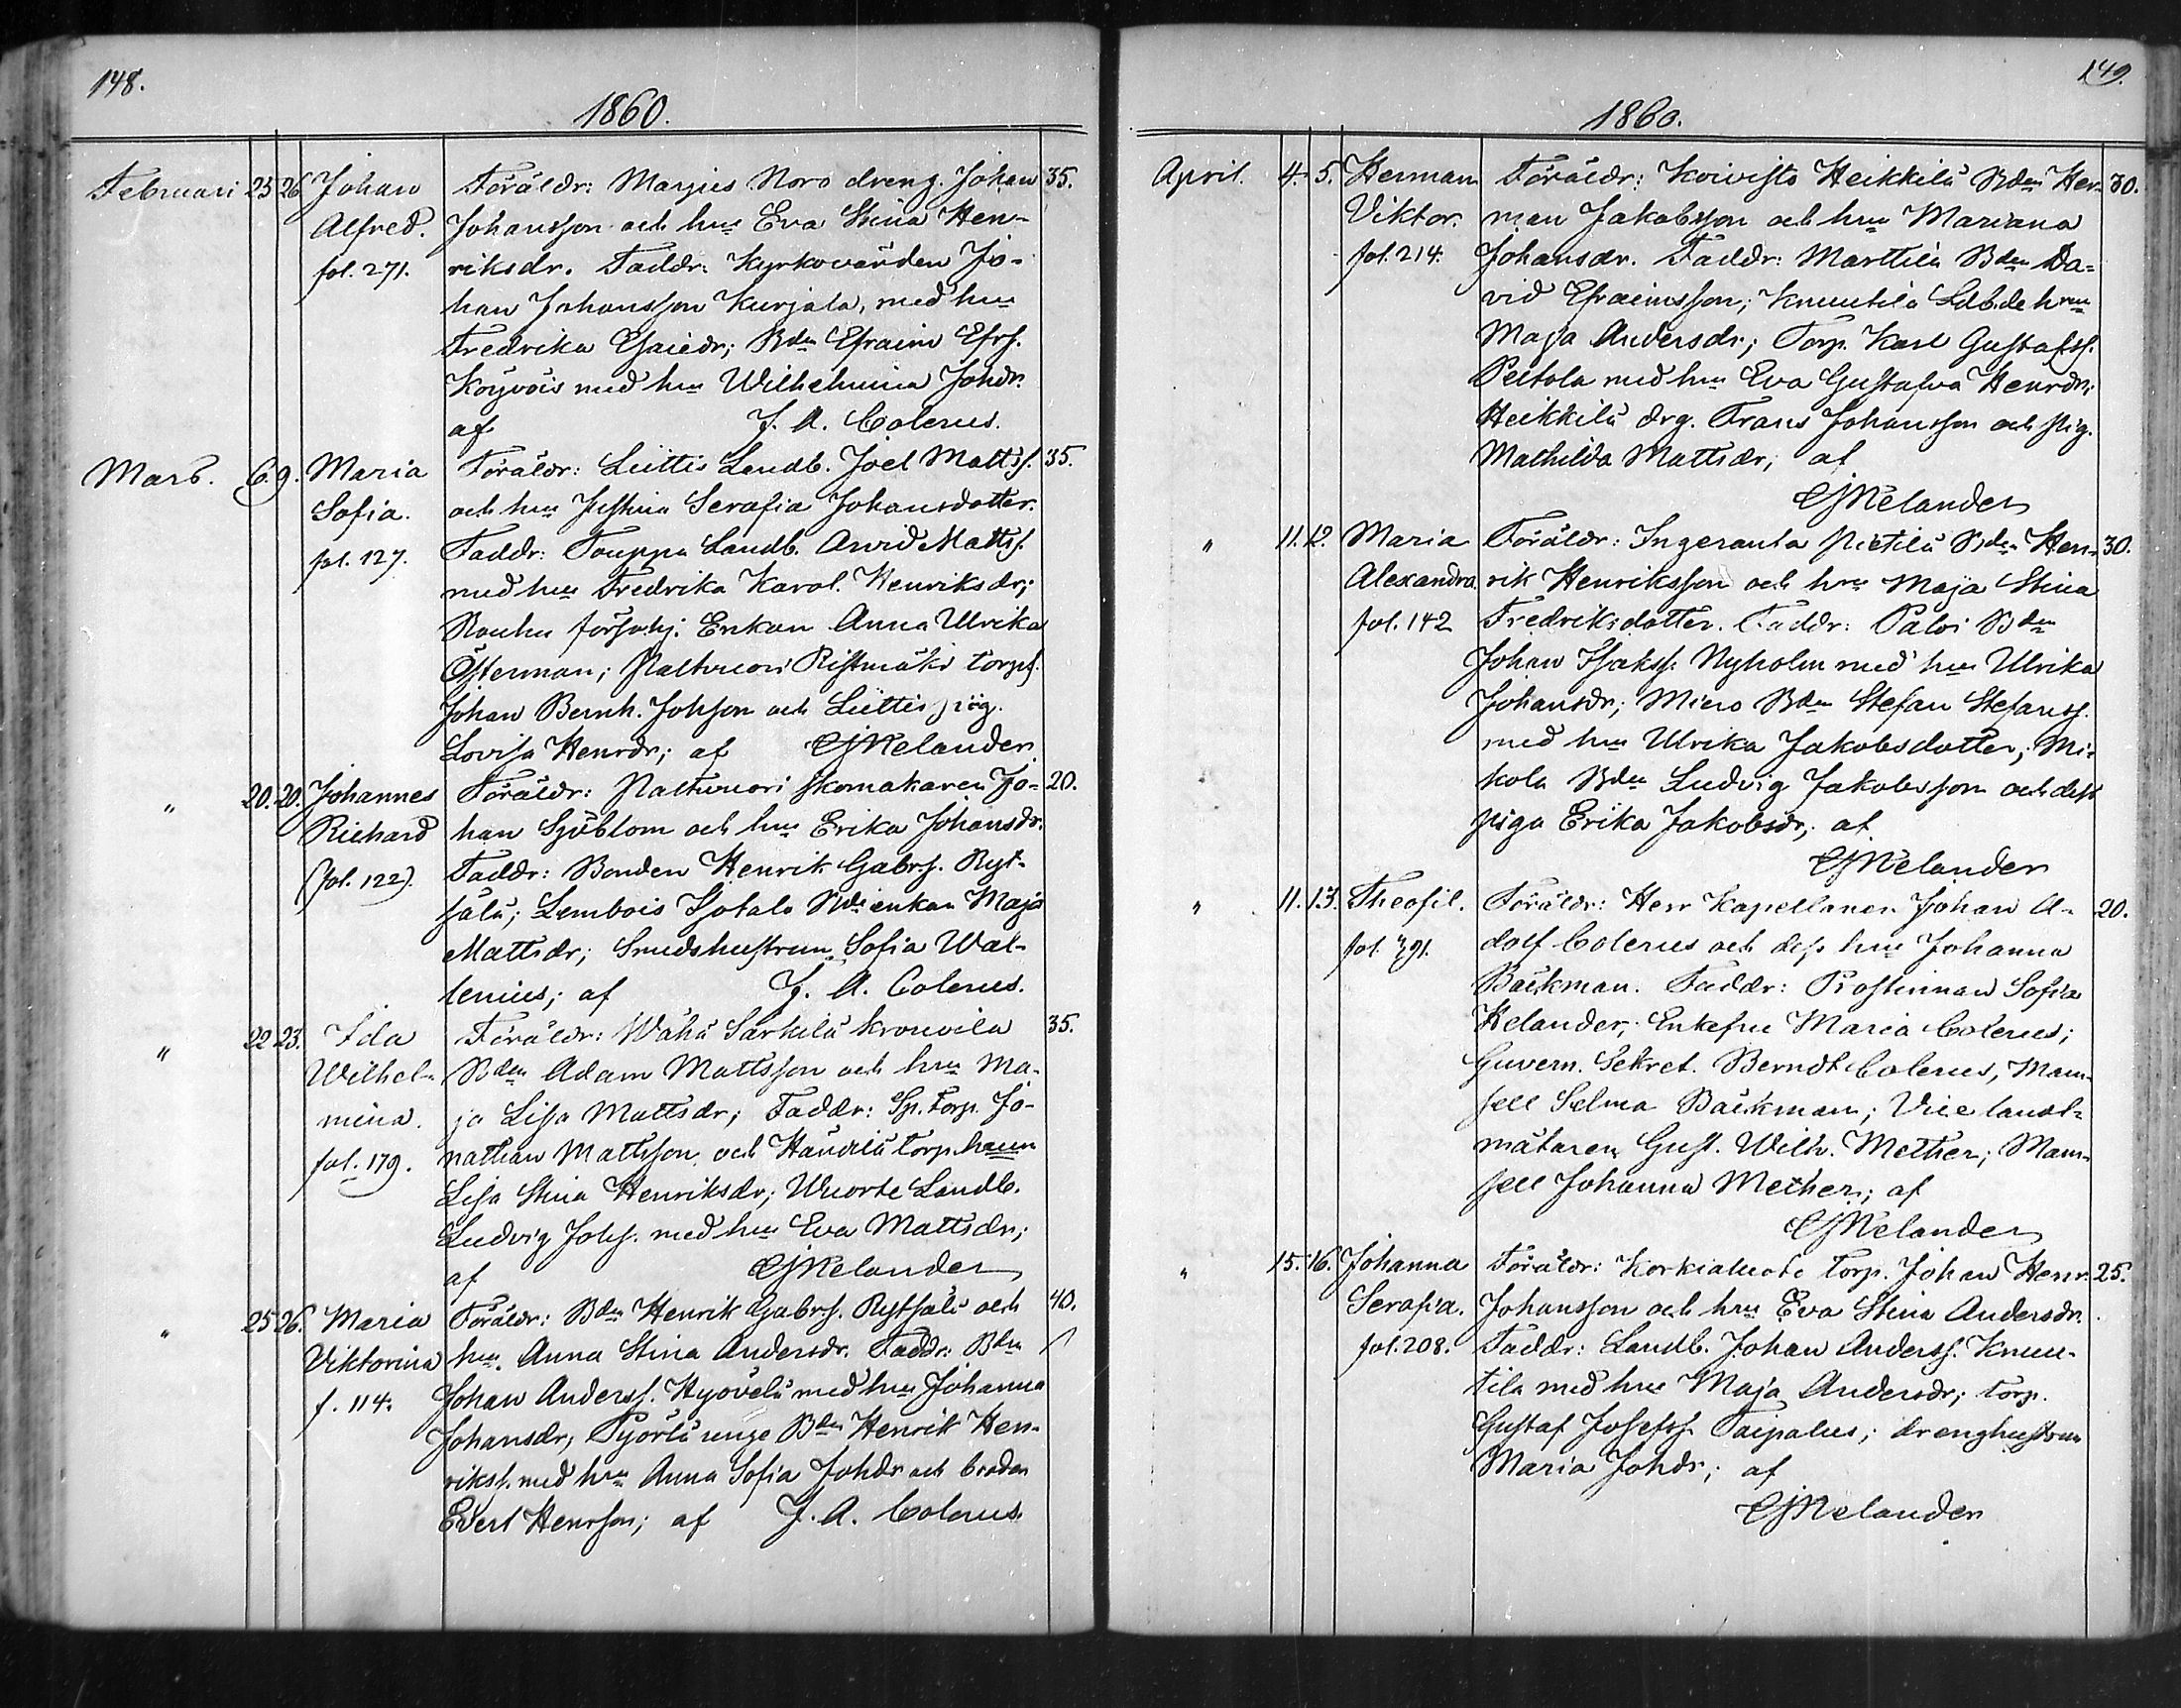 148.
1860.
Februari 25 26. Johan Föräldr: Marjus Noro dreng. Johan 35.
Alfred. Johansson och hu Eva Stina Hen-
fol. 271. riksdr. Faddr: Kyrkovärden Jo-
han Johansson Kurjala, med hu
Fredrika Esaiedr; Bdn Efraim Efrs.
med hu Wilhelmina Johdr.
af J. A. Colerus.
Mars. 6. 9. Maria Föräldr: Liettis Landb. Joel Matts. 35.
Sofia. och hu Justina Serafia Johansdotter.
fol. 127. Faddr: Touppa Landb. Arvid Matts.
med hu Fredrika Karol. Henriksdr;
Rouhu Enkan Anna Ulrika
Österman; Naltvuori Ristimäki torps.
Johan Bernh. Johsson och Liettis pig.
Lovisa Henrdr; af CJMelander
" 20. 20. Johannes Föräldr: Naltvuori skomakaren Jo- 20.
Richard han Sjöblom och hu Erika Johansdr.
(fol. 122). Faddr: Bonden Henrik Gabrs. Ryt-
sälä; Lembois Sjotala Bde enkan Maja
Mattsdr; Smedshustrun Sofia Wal-
lenius; af J. A. Colerus.
" 22 23. Ida Föräldr: Wähä Särkilä krouvila 35.
Wilhel- Bdn Adam Mattsson och hu Ma-
mina. ja Lisa Mattsdr; Faddr: Sp. torp. Jo-
fol. 179. nathan Mattsson och torp.
Lisa Stina Henriksdr; Wuorte Landb.
Ludvig Johs. med hu Eva Mattsdr;
af CJMelander
" 25 26. Maria Föräldr: Bdn Henrik Gabrs. Rytsälä och 40.
Viktorina hu Anna Stina Andersdr. Faddr: Bdn
f. 114. Johan Anderss. Hyövelä med hu Johanna
Johansdr; Pyörlä unge Bdn Henrik Hen-
rikss. med hu Anna Sofia Johdr och brodren
Evert Henrsson; af J. A. Colerus.
149.
1860.
April. 4. 5. Herman Föräldr: Koivisto Heikkilä Bdn Her- 30.
Viktor. man Jakobsson och hu Mariana
fol. 214. Johansdr. Faddr: Marttila Bdn Da-
vid Efraimsson; Knuutila Ldb.de hru
Maja Andersdr; Torp. Karl Gustafss.
Peltola med hu Eva Gustafva Henrdr;
Heikkilä drg. Frans Johansson och pig.
Mathilda Mattsdr; af
CJMelander
" 11. 12. Maria Föräldr: Ingeranta Pietilä Bdn Hen- 30.
Alexandra. rik Henriksson och hru Maja Stina
fol. 142 Fredriksdotter. Faddr: Palvi Bdn
Johan Isakss. Nyholm med hu Ulrika
Johansdr; Miero Bdn Stefan Stefanss.
med hu Ulrika Jakobsdotter; Mi-
kola Bdn Ludvig Jakobsson och dess
piga Erika Jakobsdr, af
CJMelander
" 11. 13. Theofil. Föräldr: Herr Kapellanen Johan A- 20.
fol. 391. dolf Colerus och dess hru Johanna
Bäckman. Faddr: Prostinnan Sofia
Helander; Enkefru Maria Colerus;
Guvern. Sekret. Berndt Colerus, Mam-
sell Selma Bäckman; Vice landt-
mätaren Gust. Wilh. Mether; Mam-
sell Johanna Mether; af
CJMelander
" 15. 16. Johanna Föräldr: Korkialuoto Torp. Johan Henr. 25.
Serafia. Johansson och hru Eva Stina Andersdr.
fol. 208. Faddr: Landb. Johan Anderss. Knuu-
tila med hru Maja Andersdr; torp.
Gustaf Josefss. Taipalus; drenghustrun
Maria Johdr; af
CJMelander